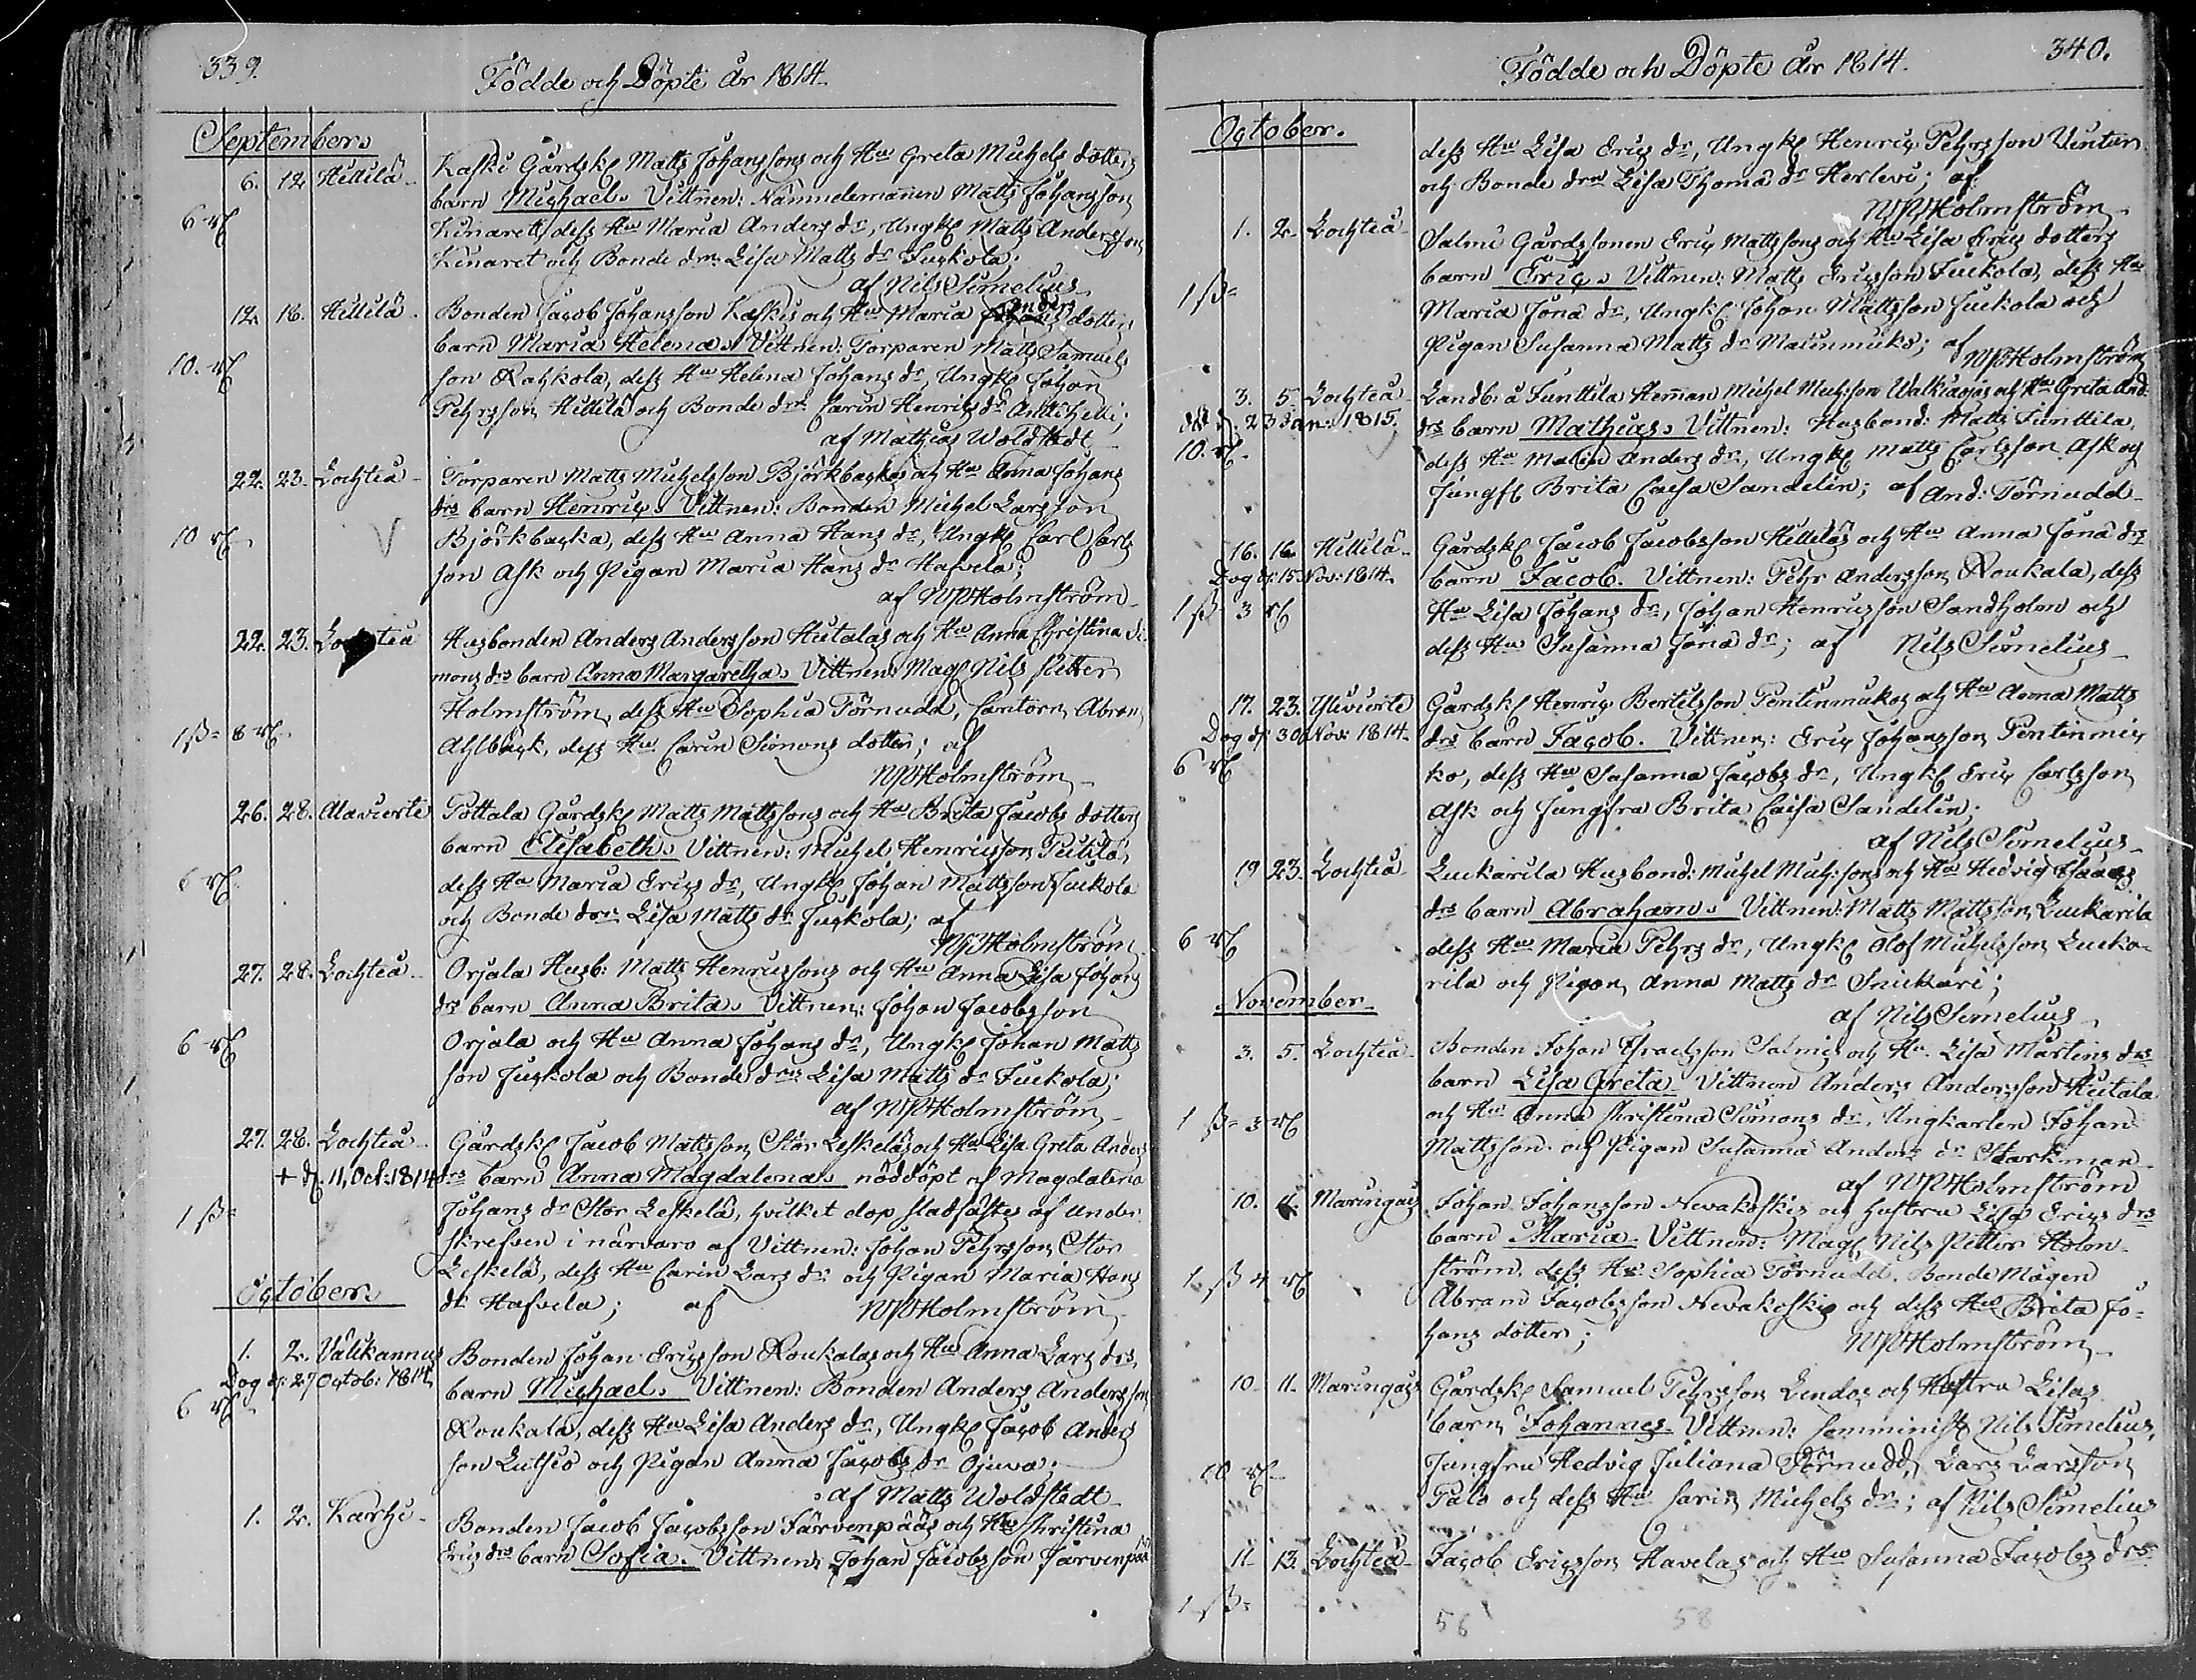 339.
Födde och Döpte år 1814.
September.
6. 12. Hillilä Kaski Gårdsk. Matts Johanssons och Hu Greta Michels dotters
barn Michael. Vittnen: Nämndemannen Matts Johansson
6 rk Kinaret, dess Hu Maria Anders dr, Ungk. Matts Andersson
Kinaret och Bonde drn Lisa Matts dr Juckola;
af Nils Simelius
12. 18. Hillilä Bonden Jacob Johansson Kaskis och Hu Maria Anders dotters
barn Maria Helena. Vittnen: Torparen Matts Samuels
10. rk son Rahkola, dess Hu Helena Johans dr, Ungk. Johan
Pehrsson Hillilä och Bonde drn Carin Henrics dr Anttihelli;
af Mathias Woldstedt
22. 23. Lochteå Torparen Matts Michelsson Björkbackas och Hu Anna Johans
drs barn Henric. Vittnen: Bonden Michel Larsson
10 rk Björkbacka, dess Hu Anna Hans dr, Ungk. Carl Carls
son Ask och Pigan Maria Hans dr Hafvela;
af NPHolmström
22. 23. Lochteå Husbonden Anders Andersson Hietalas och Hu Anna Christina Si
mons drs barn Anna Margaretha. Vittnen: Mag. Nils Petter
Holmström, dess Hu Sophia Törnudd, Cantorn Abram
1 ß= 8 rk Ahlbäck, dess Hu Carin Simons dotter; af
NPHolmström
26. 28. Alavierte Pottala Gårdsk. Matts Mattssons och Hu Brita Jacobs dotters
barn Elisabeth. Vittnen: Michel Henricsson Peitilä,
6 rk dess Hu Maria Erics dr, Ungk. Johan Mattsson Juckola
och Bonde drn Lisa Matts dr Juckola; af
NPHolmström
27. 28. Lochteå Orjala Husb: Matts Henricssons och Hu Anna Lisa Johans
drs barn Anna Brita. Vittnen: Johan Jacobsson
6 rk Orjala och Hu Anna Johans dr, Ungk. Johan Matts
son Juckola och Bonde drn Lisa Matts dr Juckola;
af NPHolmström
27. 28. Lochteå Gårdsk. Jacob Mattsson Stor Leskeläs och Hu Lisa Greta Anders
+ d. 11. Oct: 1814 drs barn Anna Magdalena. nöddöpt af Magdalena
1 ß= Johans dr Stor Leskelä, hvilket dop stadfästes af under
skrefven i närvaro af Vittnen: Johan Pehrsson Stor
Leskelä, dess Hu Carin Lars dr och Pigan Maria Hans
dr Hafvela; af NPHolmström
October.
1. 2. Välikannus Bonden Johan Ericsson Roukalas och Hu Anna Lars drs
Dog d: 27 Octob: 1814. barn Michael. Vittnen: Bonden Anders Andersson
6 rk Roukala, dess Hu Lisa Anders dr, Ungk. Jacob Anders
son och Pigan Anna Jacobs dr Ojuva;
af Matts Woldstedt
1. 2. Karhi Bonden Jacob Jacobsson Järvenpääs och Hu Christina
Erics drs barn Sofia. Vittnen: Johan Jacobsson Järvenpää
340.
Födde och Döpte år 1814.
October.
dess Hu Lisa Erics dr, Ungk. Henric Pehrsson Vintturi
och Bonde drn Lisa Thoma dr Herlevi; af
NPHolmström
1. 2. Lochteå Salmi Gårdssonen Eric Mattssons och Hu Lisa Erics dotters
barn Eric. Vittnen: Matts Ericsson Juckola, dess Hu
1 ß= Maria Jona dr, Ungk. Johan Mattsson Juckola och
Pigan Susanna Matts dr Matinmicko; af
NPHolmström
3. 5. Lochteå Landb: å Junttila Hemman Michel Mich:son Walkiaojas och Hu Greta And
död d. 23 Jan: 1815. drs barn Mathias. Vittnen: Husbond: Matts Junttila,
10. rk dess Hu Malin Anders dr, Ungk. Matts Carlsson Ask och
Jungfr Brita Caisa Sandelin; af And: Törnudd
16. 16. Hillilä Gårdsk. Jacob Jacobsson Hilliläs och Hu Anna Jona drs
Dog d: 15. Nov: 1814. barn Jacob. Vittnen: Pehr Andersson Roukala, dess
1 ß 3 rk Hu Lisa Johans dr, Johan Henricsson Sandholm och
dess Hu Susanna Jona dr; af Nils Simelius
17. 23. Ylivierte Gårdsk. Henric Bertilsson Pentinmikos och Hu Anna Matts
Dog d: 30. Nov: 1814. drs barn Jacob. Vittnen: Eric Johansson Pentinmic
6 rk ko, dess Hu Susanna Jacobs dr, Ungk. Eric Carlsson
Ask och Jungfru Brita Caisa Sandelin;
af Nils Simelius
19 23. Lochteå Luckarila Husbond: Michel Mich:sons och Hu Hedvig Isaacs
drs barn Abraham. Vittnen: Matts Mattsson Luckarila
6 rk dess Hu Maria Pehrs dr, Ungk. Olof Michelsson Lucka-
rila och Pigan Anna Matts dr Snickari;
November.
af Nils Simelius
3. 5. Lochteå Bonden Johan Israelsson Salmis och Hu Lisa Mårtens drs
barn Lisa Greta Vittnen Anders Andersson Hietala
1 ß= 3 rk och Hu Anna Christina Simons dr, Ungkarlen Johan
Mattsson och Pigan Susanna Anders dr Starkman
af NPHolmström
10. Maringais Johan Johansson Nevakoskis och hustru Lisa Erics drs
barn Maria. Vittnen: Mag. Nils Petter Holm-
1 ß 4 rk ström, dess Hu Sophia Törnudd, Bonde Mågen
Abram Jacobsson Nevakoski och dess Hu Brita Jo-
hans dotter; NPHolmström
10 11. Maringais Gårdsk. Samuel Pehrsson Lindas och Hustru Lisas
barn Johannes Vittnen: Comminist. Nils Simelius,
10 rk Jungfru Hedvig Juliana Törnudd, Lars Larsson
Palo och dess Hu Carin Michels dr; af Nils Simelius
11 13. Lochteå Jacob Ericsson Havelas och Hu Susanna Jacobs drs
1 ß=
56 58